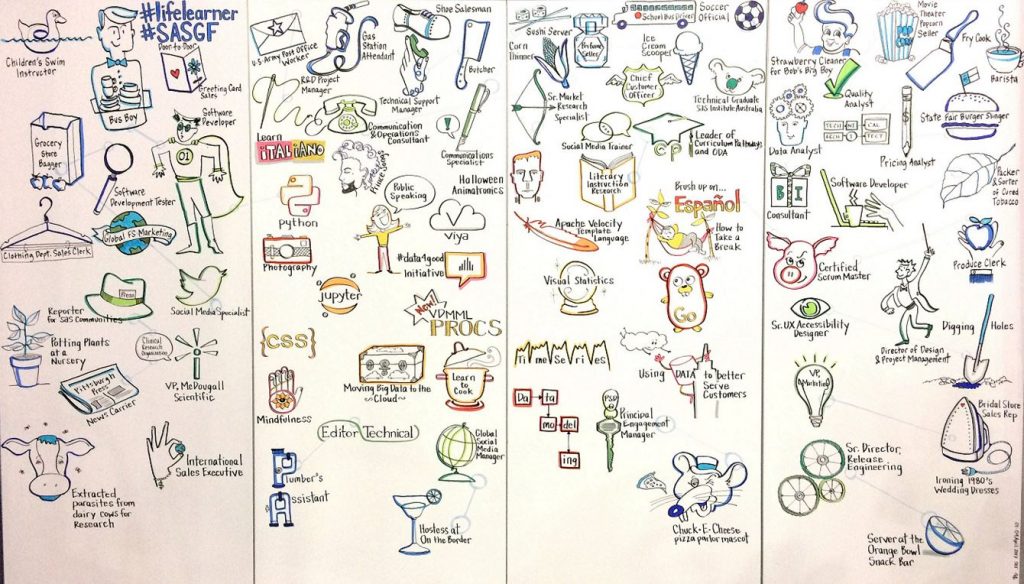 #lifelearner
#SASGF
Children's Swim
Instructor
Bus Boy
Door to Door
Greeting Card
Sales
Grocery
Store
Bagger
Software
Developer
01
Software
Development Tester
Global FS Marketing
Clothing Dept. Sales Clerk
Press
Reporter
for SAS Communities
Social Media Specialist
Potting Plants
at a
Nursery
Clinical
Research
Organization
VP, McDougall
Scientific
Pittsburgh
Press
News Carrier
Extracted
parasites from
dairy cows for
Research
International
Sales Executive
U.S. Army Post Office
Worker
Gas
Station
Attendant
Shoe Salesman
Butcher
R&D Project
Manager
Technical Support
Manager
Communication
& Operations
Consultant
Communications
Specialist
Learn
ITALIANO
Public
Speaking
Halloween
Animatronics
Python
Viya
Photography
#data4good
Initiative
jupyter
New!
VDMML
PROCS
{CSS}
Moving Big Data to the
Cloud
Learn
to
Cook
Mindfulness
Editor Technical
Global
Social
Media
Manager
Plumber's
Assistant
Hostess at
On the Border
Sushi Server
School Bus Driver
Soccer
Official
Corn
Thinner
Perfume
Seller
Ice
Cream
Scooper
Chief
Customer
Officer
Technical Graduate
SAS Institute Australia
Sr. Market
Research
Specialist
Social Media Trainer
CP
Leader of
Curriculum Pathways
and ODA
Literacy
Instruction
Research
Brush up on...
Español
Apache Velocity
Template
Language
How to
Take a
Break
Visual Statistics
Go
Time Series
Using DATA to Better
Serve
Customers
Da ta
mo del
ing
PSD
Principal
Engagement
Manager
Chuck-E-Cheese
pizza parlor mascot
Strawberry Cleaner
for Bob's Big Boy
Movie
Theater
Popcorn
Seller
Fry Cook
Barista
Quality
Analyst
Data Analyst
Pricing Analyst
State Fair Burger Slinger
BI
Consultant
Software Developer
Packer
& Sorter
of Cured
Tobacco
Certified
Scrum Master
Produce Clerk
Sr. UX Accessibility
Designer
Director of Design
& Project Management
Digging Holes
VP,
Marketing
Bridal Store
Sales Rep
Sr. Director,
Release
Engineering
Ironing 1980's
Wedding Dresses
Server at the
Orange Bowl
Snack Bar